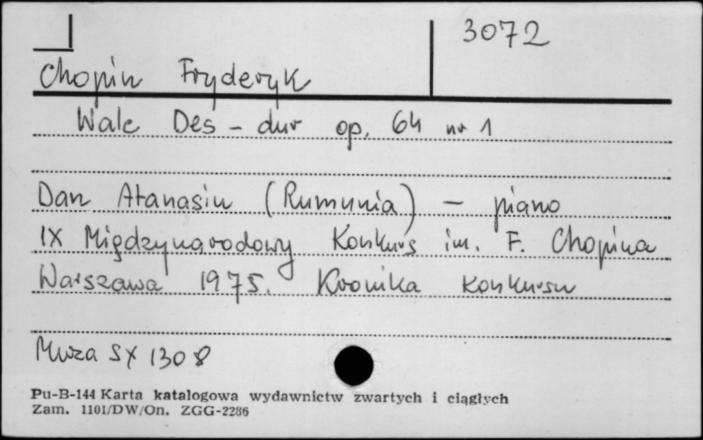 3072
Chopin Fryderyk
Walc Des-dur op. 64 nr 1
Dan Atanasiu (Rumunia) – piano
IX Międzynarodowy Konkurs im. F. Chopina
Warszawa 1975. Kronika konkursu
Muza SX 1308
Pu-B-144 Karta katalogowa wydawnictw zwartych i ciągłych
Zam. 1101/DW/On. ZGG-2286